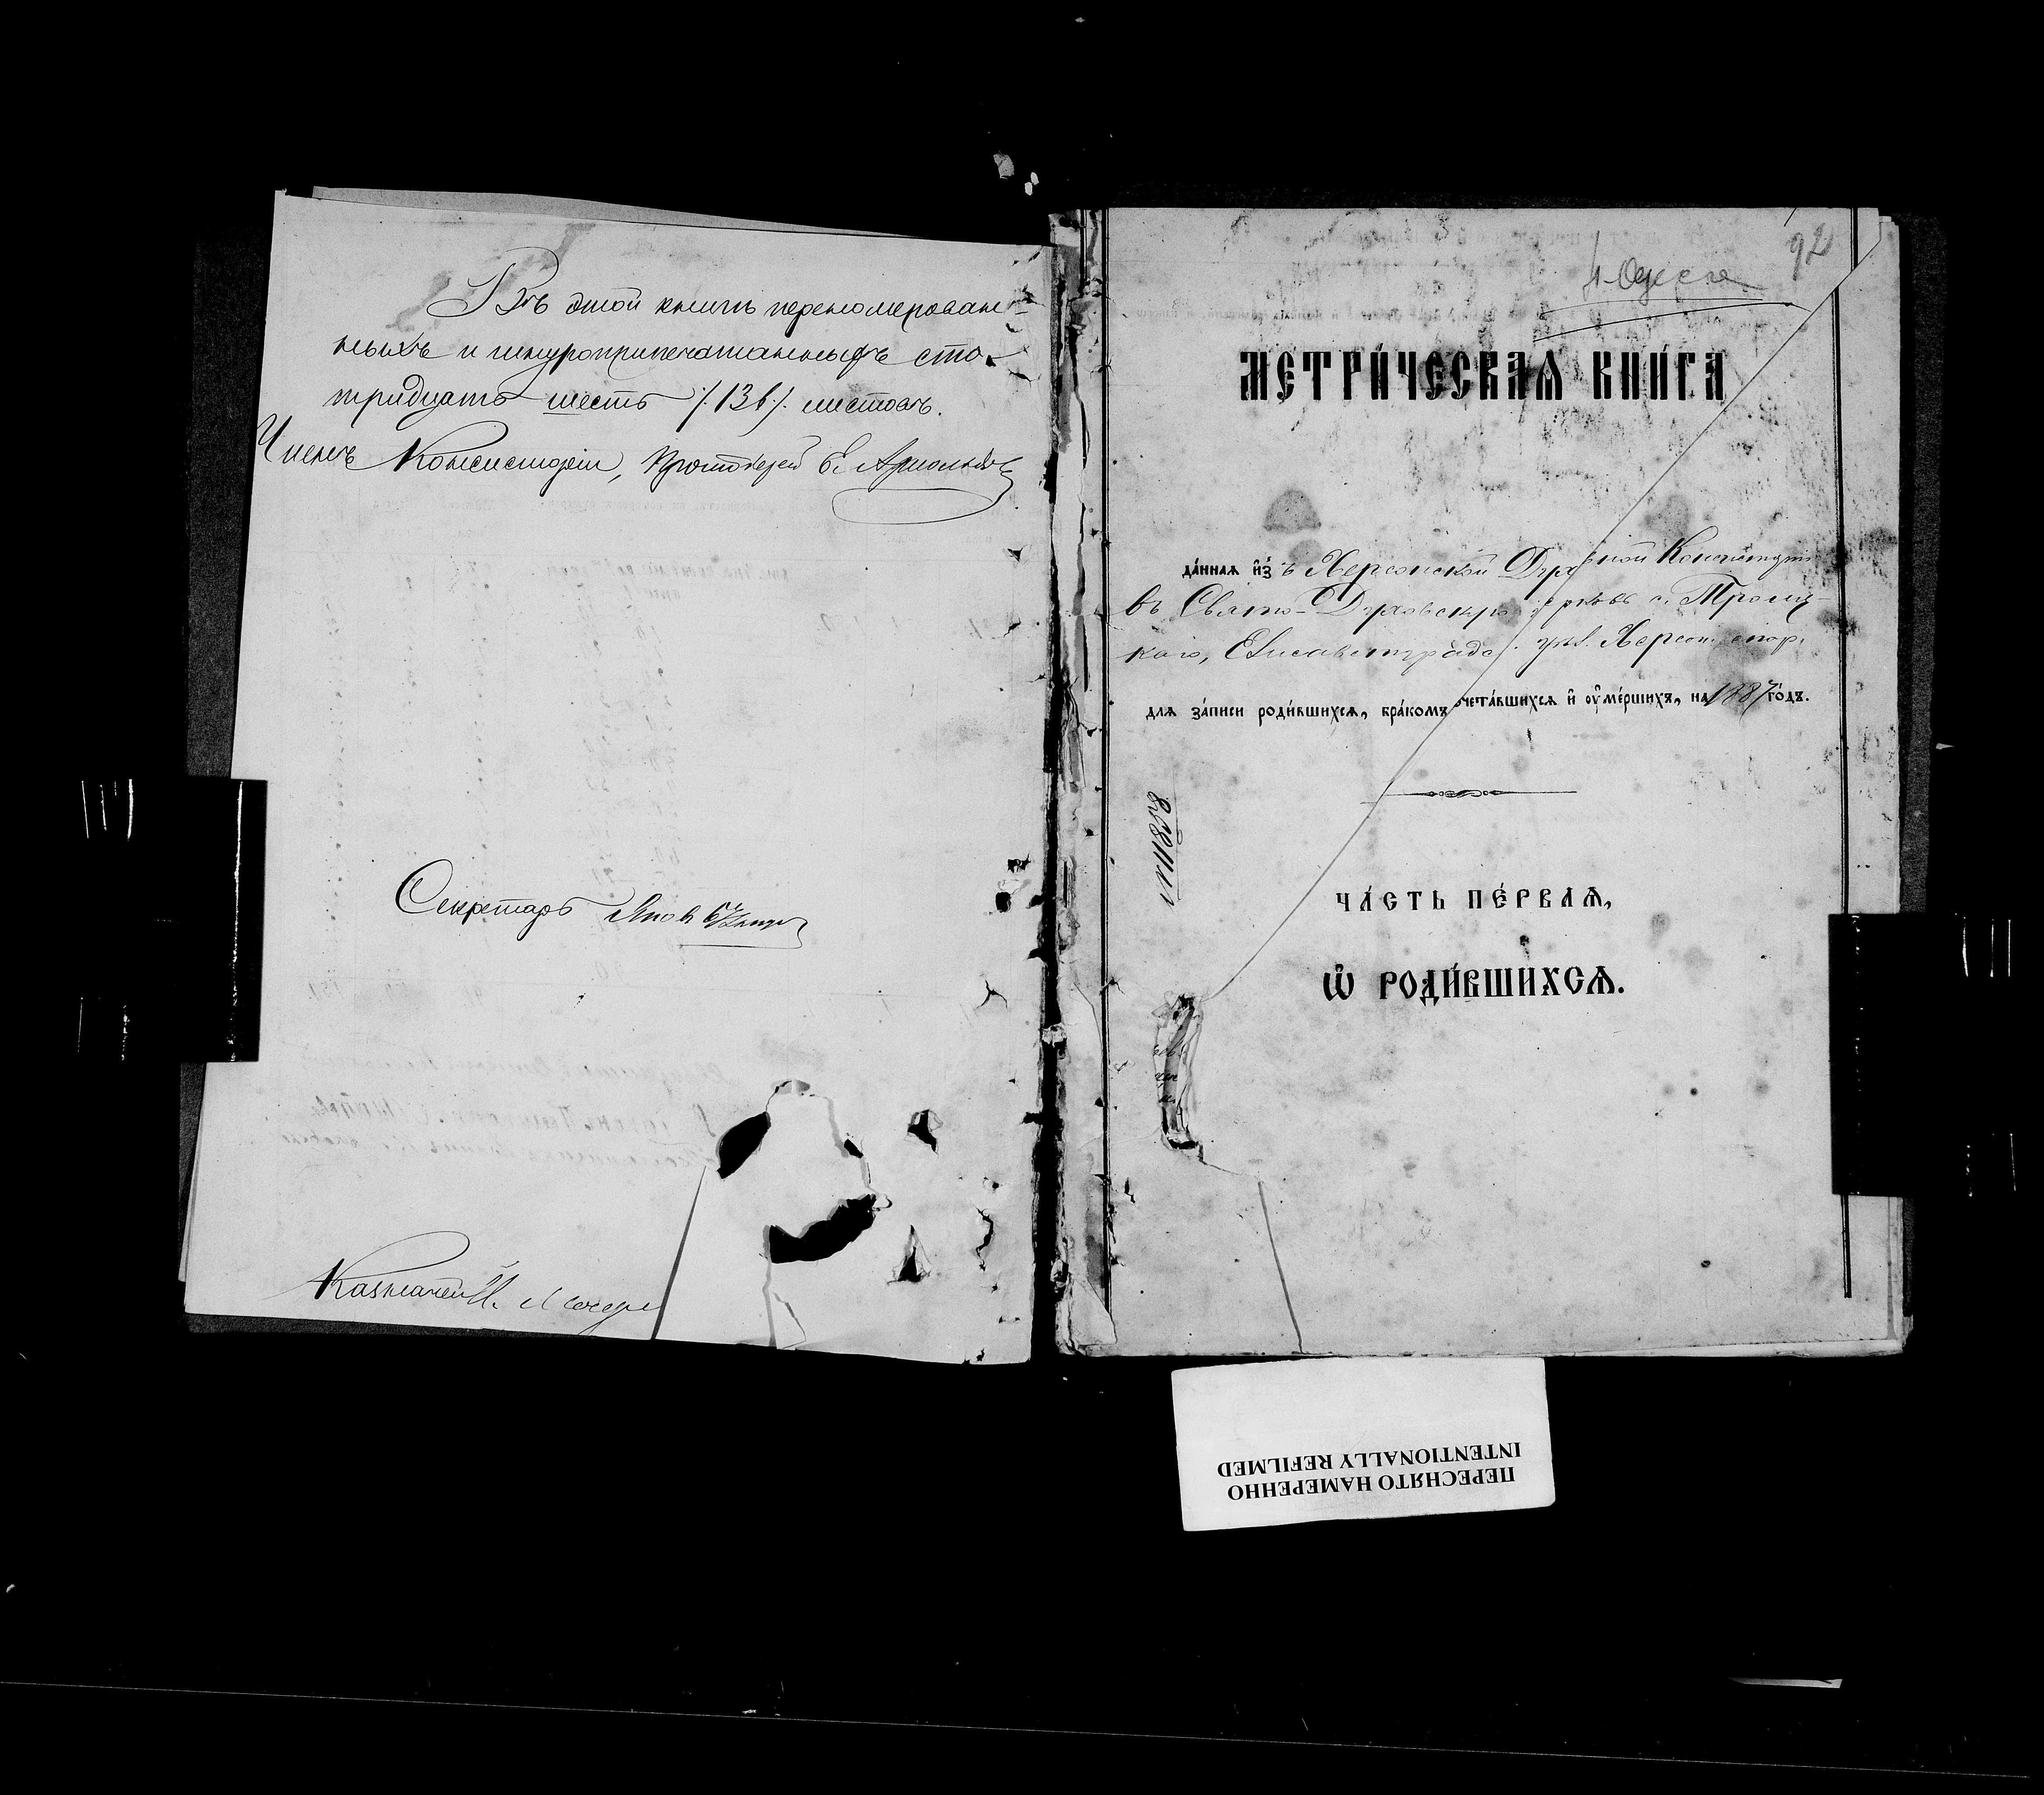 Въ этой книгѣ перенумерован-
ныхъ и шнуроприпечатанныхъ сто
тридцать шесть /.136./ листовъ.
Членъ Консисторіи, Протоіерей Е. Арнольдовъ
Секретарь
Казначей И.
92
г. Одесса
МЕТРИ́ЧЕСКАѦ КНИ́ГА
да́нная и҆з̾ Херсонской Духовной Консисторіи
въ Свято-Духовскую церковь с. Троиц-
каго, Елисаветградс. уѣз. Херсон. епар.
для за́писи роди́вшихся, бра́комъ сочета́вшихся и҆ ᲂу҆ме́ршихъ, на 1887 го́дъ.
№ 11858
ЧА́СТЬ ПЕ́РВАѦ,
Ѽ РОДИ́ВШИХСѦ.
ПЕРЕСНЯТО НАМЕРЕННО
INTENTIONALLY REFILMED